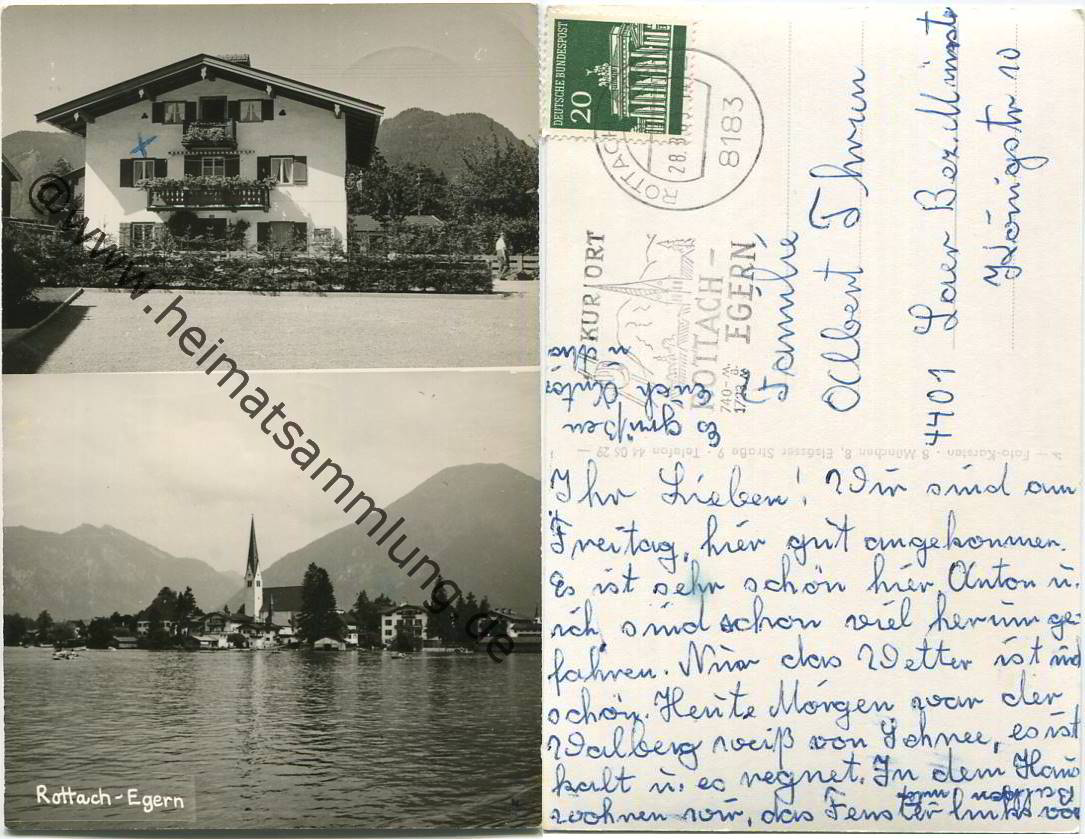 @www.heimatsammlung.de
Rottach-Egern
DEUTSCHE BUNDESPOST
20
ROTTACH
28.
8183
KURORT
ROTTACH-
EGERN
Familie
Albert Thrun
4401 Laer Bez. Münster
Königstr 10
Foto-Karsten · 8 München 8, Elsässer Straße 9 · Telefon 44 06 29
Ihr Lieben! Wir sind am
Freitag, hier gut angekommen.
Es ist sehr schön hier, Anton u.
ich, sind schon viel herum ge-
fahren. Nur das Wetter ist nid
schön. Heute Morgen war der
Walberg weiß von Schnee, es ist
kalt u. es regnet. In dem Haus
wohnen wir, das Fenster links vo
Balkon und
Es grüßen
Euch
u